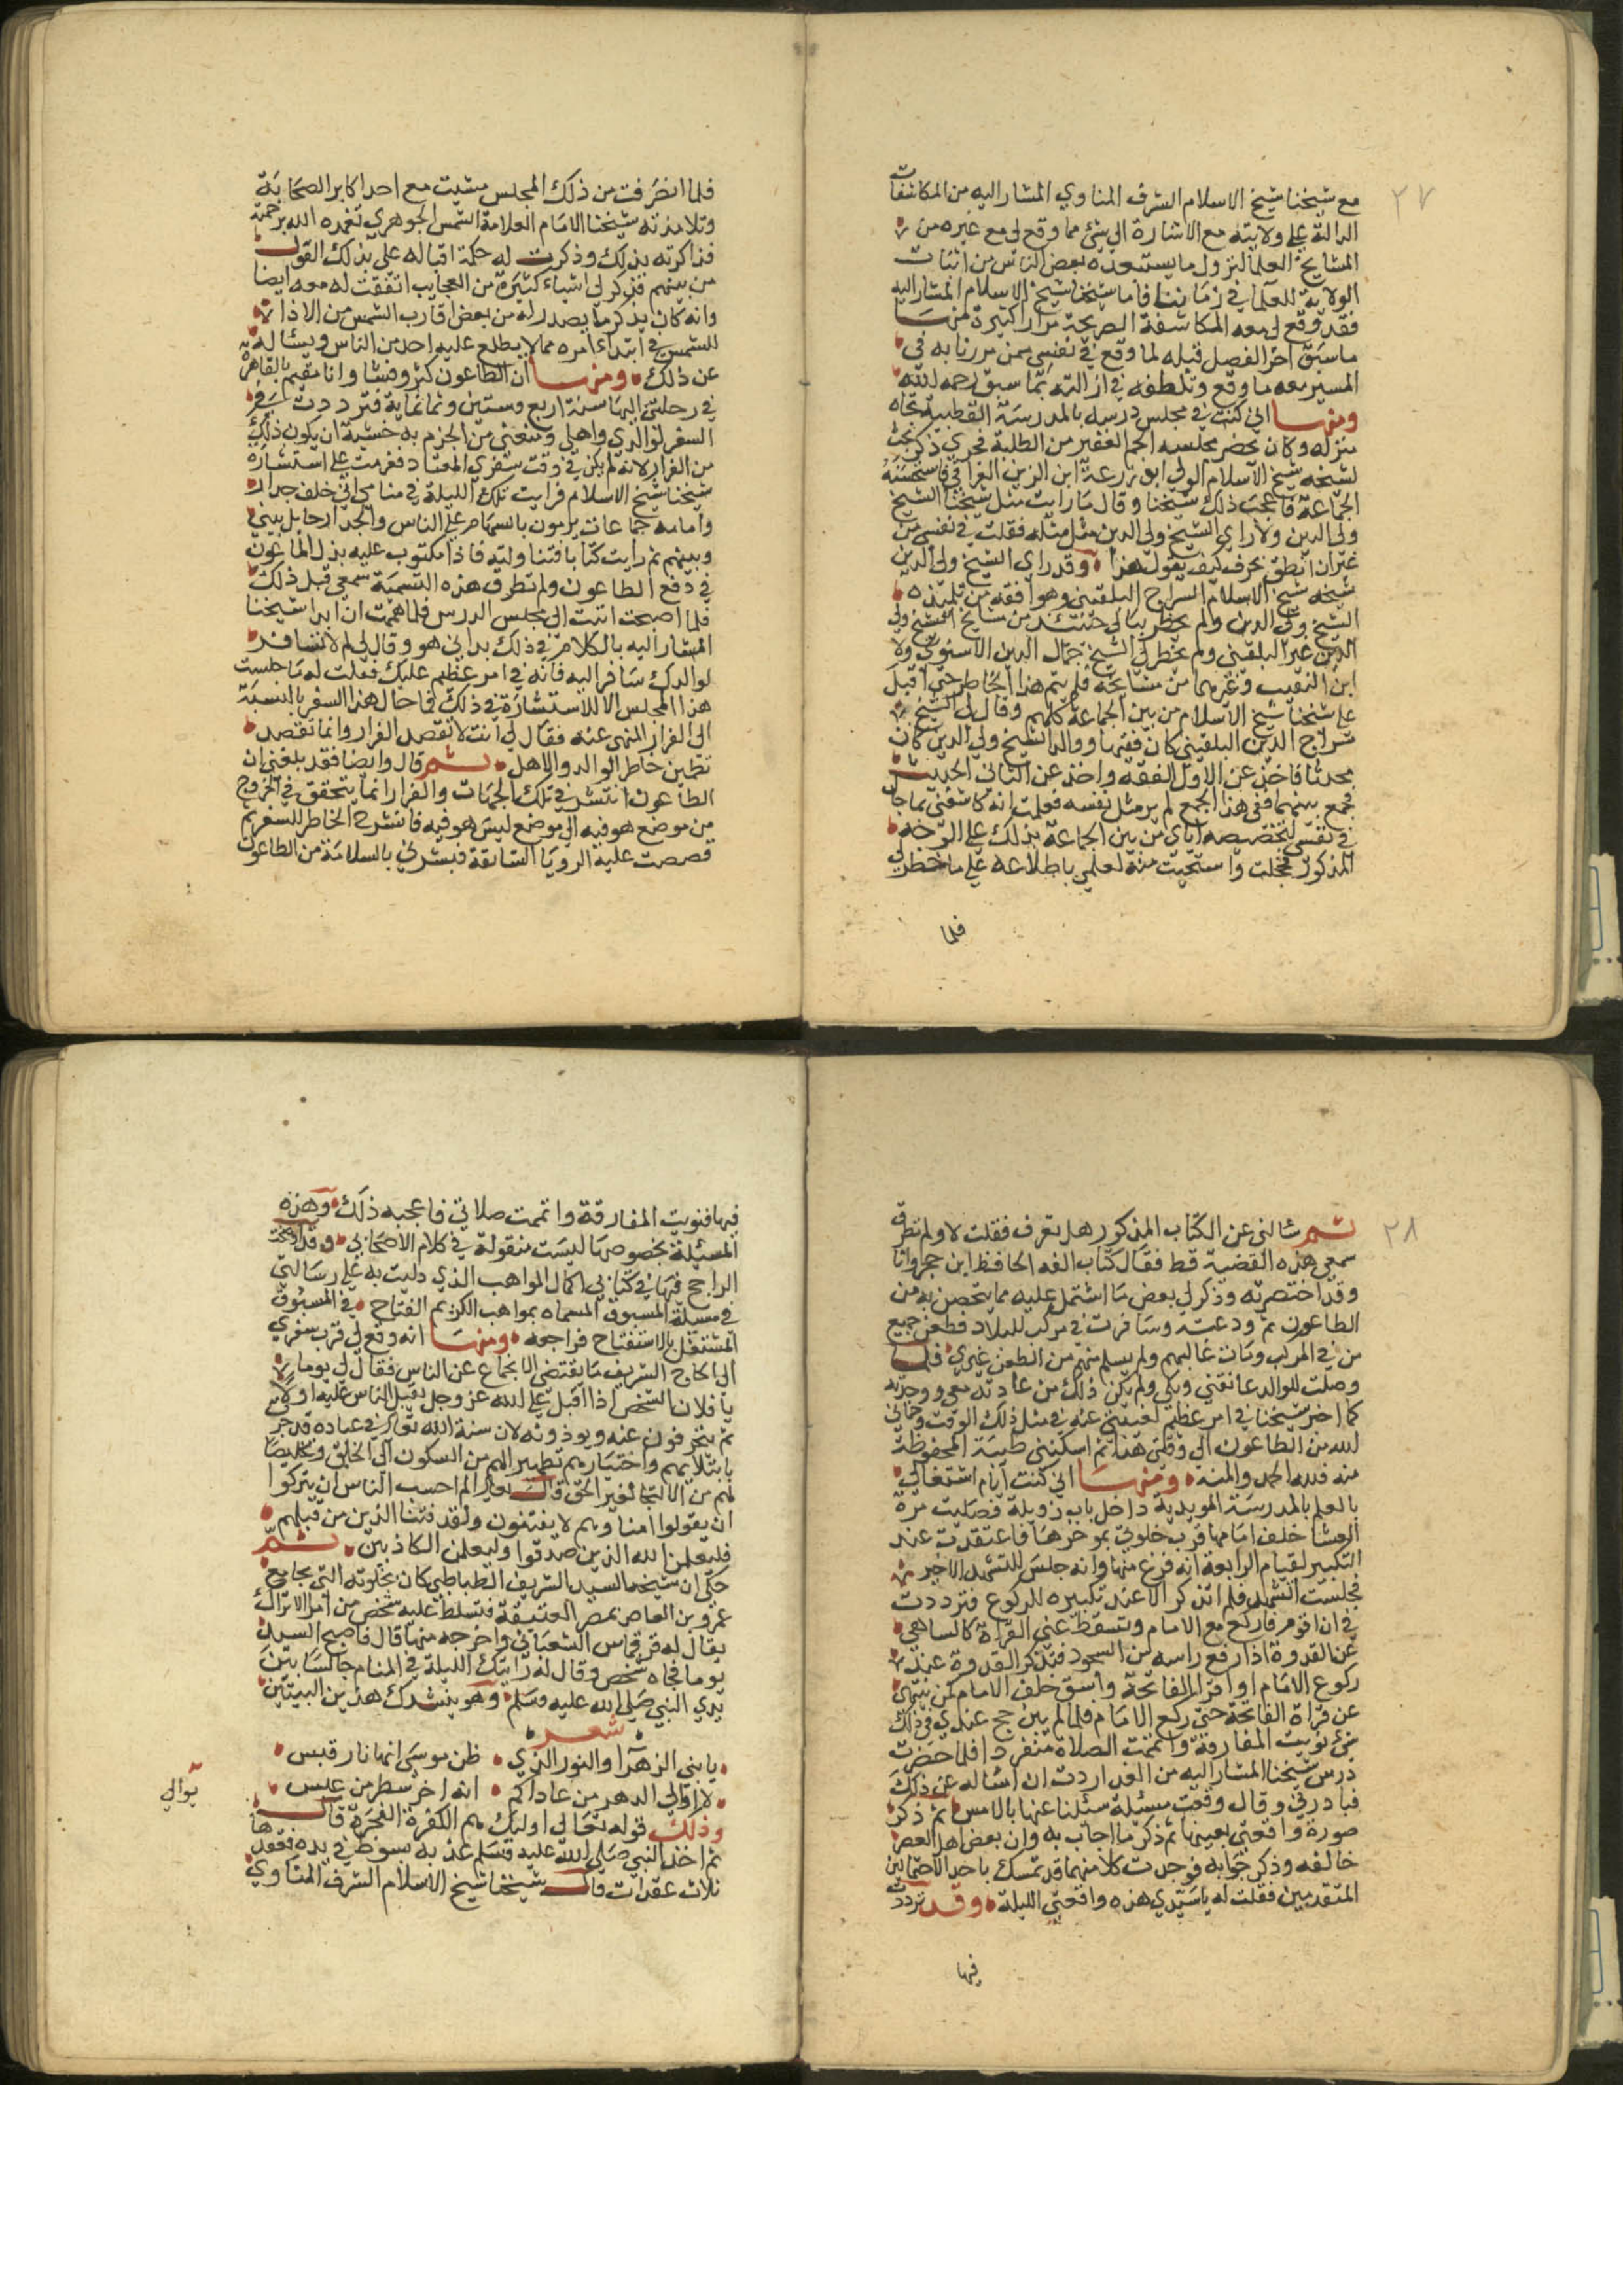 ٢٧
مع شيخنا شيخ الاسلام الشرف المناوي المشار اليه من المكاشفات
الدالة على ولايته مع الاشارة الى شئ مما وقع لي مع غيره من
المشايخ العلما لنزول ما يستبعده بعض الناس من اثبات
الولاية للعلما في زماننا فاما شيخنا شيخ الاسلام المشار اليه
فقد وقع لي معه المكاشفة الصريحة مرارا كثيرة فمنها
ما سبق اخر الفصل قبله لما وقع في نفسي ممن مررنا به في
المسير معه ما وقع وتلطفه في ازالته بما سبق رحمه الله
ومنها اني كنت في مجلس درسه بالمدرسة القطبية تجاه
منزله وكان يحضر مجلسه الجم الغفير من الطلبة فجرى ذكر بحث
لشيخه شيخ الاسلام الولي ابو زرعة ابن الزين العراقي فاستحسنه
الجماعة فاعجب ذلك شيخنا وقال ما رايت مثل شيخنا الشيخ
ولى الدين ولا راى الشيخ ولى الدين مثل مثله فقلت في نفسي من
غير ان انطق بحرف كيف يقول هذا وقد راى الشيخ ولى الدين
شيخه شيخ الاسلام السراج البلقيني وهو افقه من تلميذه
الشيخ ولى الدين ولم يخطر ببالي حينئذ من مشايخ الشيخ ولى
الدين غير البلقيني ولم يخطر لي الشيخ جمال الدين الاسنوي ولا
ابن النقيب وغيرهما من مشايخه فلم يتم هذا الخاطر حتى اقبل
على شيخنا شيخ الاسلام من بين الجماعة كلهم وقال لي الشيخ
سراج الدين البلقيني كان فقيها ووالد الشيخ ولى الدين كان
محدثا فاخذ عن الاول الفقه واخذ عن الثاني الحديث
فجمع بينهما ففي هذا الجمع لم ير مثل نفسه فعلمت انه كاشفني بما جال
في نفسي لتخصيصه اياي من بين الجماعة بذلك على الوجه
المذكور فخجلت واستحييت منه لعلمي باطلاعه على ما خطر لي
فلما
فلما انصرفت من ذلك المجلس مشيت مع احد اكابر الصحابة
وتلامذته شيخنا الامام العلامة الشمس الجوهري تغمده الله برحمته
فذاكرته بذلك وذكرت له حكمة اقباله علي بذلك القول
من بينهم فذكر لي اشياء كثيرة من العجايب اتفقت له معه ايضا
وانه كان يذكر ما يصدر له من بعض اقارب الشمس من الاذاة
للشمس في ابتداء امره مما لا يطلع عليه احد من الناس ويساله
عن ذلك ومنها ان الطاعون كثر وفشا وانا مقيم بالقاهرة
في رحلتي اليها سنة اربع وستين وثمانماية فترددت في
السفر لوالدي واهلي ومنعني من الجزم به خشية ان يكون ذلك
من الفرار لانه لم يكن في وقت سفري المعتاد فعزمت على استشارة
شيخنا شيخ الاسلام فرايت تلك الليلة في منامي اني خلف جدار
وامامه جماعات يرمون بالسهام على الناس والجدار حايل بيني
وبينهم ثم رايت كتابا فتناولته فاذا مكتوب عليه بذل الماعون
في دفع الطاعون ولم تطرق هذه التسمية سمعي قبل ذلك
فلما اصبحت اتيت الى مجلس الدرس فلما هممت ان ابدا شيخنا
المشار اليه بالكلام في ذلك بداني هو وقال لي لم لا تسافر
لوالدك سافر اليه فانه في امر عظيم عليك فقلت له ما جلست
هذا المجلس الا للاستشارة في ذلك فما حال هذا السفر بالنسبة
الى الفرار المنهى عنه فقال لي انت لا تقصد الفرار وانما تقصد
تطمين خاطر الوالد والاهل ثم قال وايضا فقد بلغني ان
الطاعون انتشر في تلك الجهات والفرار انما يتحقق في الخروج
من موضع هو فيه الى موضع ليس هو فيه فانشرح الخاطر للسفر ثم
قصصت عليه الرويا السابقة فبشرني بالسلامة من الطاعون
٢٨
ثم سالني عن الكتاب المذكور هل تعرف فقلت لا ولم تطرق
سمعي هذه القضية قط فقال كتاب الفه الحافظ ابن حجر وانا
وقد اختصرته وذكر لي بعض ما اشتمل عليه مما يتحصن به من
الطاعون ثم ودعته وسافرت في مركب للبلاد فطعن جميع
من في المركب ومات غالبهم ولم يسلم منهم من الطعن غيري فلما
وصلت للوالد عانقني وبكى ولم يكن ذلك من عادته معي ووجدته
كما اخبر شيخنا في امر عظيم لغيبتي عنه في مثل ذلك الوقت وحماني
الله من الطاعون الى وقتي هذا ثم اسكنني طيبة المحفوظة
منه فلله الحمد والمنة ومنها اني كنت ايام اشتغالي
بالعلم بالمدرسة المويدية داخل باب زويلة فصليت مرة
العشا خلف امامها قرب خلوتي بموخرها فاعتقدت عند
التكبير لقيام الرابعة انه فرغ منها وانه جلس للتشهد الاخير
فجلست اتشهد فلم اتذكر الا عند تكبيره للركوع فترددت
في ان اقوم فاركع مع الامام وتسقط عني القراة كالساهي
عن القدوة اذا رفع راسه من السجود فتذكر القدوة عند
ركوع الامام او اقرا الفاتحة واسعى خلف الامام كمن سهى
عن قراة الفاتحة حتى ركع الامام فلما لم يترجح عندي في ذلك
شئ نويت المفارقة واتممت الصلاة منفردا فلما حضرت
درس شيخنا المشار اليه من الغد اردت ان اساله عن ذلك
فبادرني وقال وقعت مسئلة سئلنا عنها بالامس ثم ذكر
صورة واقعتي بعينها ثم ذكر ما اجاب به وان بعض اهل العصر
خالفه وذكر جوابه فوجدت كلا منهما قد تمسك باحد الاحتمالين
المتقدمين فقلت له يا سيدي هذه واقعتي الليلة وقد ترددت
فيها
فيها فنويت المفارقة واتممت صلاتي فاعجبه ذلك وهذه
المسئلة بخصوصها ليست منقولة في كلام الاصحاب وقد اوضحت
الراجح فيها في كتابي اكمال المواهب الذي ذيلت به على رسالتي
في مسئلة المسبوق المسماة بمواهب الكريم الفتاح في المسبوق
المشتغل بالاستفتاح فراجعه ومنها انه وقع لي قرب سفري
الى الحاج الشريف ما يقتضي الانجماع عن الناس فقال لي يوما
يا فلان الشخص اذا اقبل على الله عز وجل يقبل الناس عليه اولا
ثم ينحرفون عنه ويوذونه لان سنة الله تعالى في عباده قد جرت
بابتلائهم واختبارهم تطهيرا لهم من السكون الى الخلق وتخليصا
لهم من الالتجا لغير الحق قال تعالى الم احسب الناس ان يتركوا
ان يقولوا امنا وهم لا يفتنون ولقد فتنا الذين من قبلهم
فليعلمن الله الذين صدقوا وليعلمن الكاذبين ثم
حكى ان شيخه السيد الشريف الطباطبي كان بخلوته التي بجامع
عمرو بن العاص بمصر العتيقة فتسلط عليه شخص من امرا الاتراك
يقال له قرقماس الشعباني واخرجه منها قال فاصبح السيد
يوما فجاه شخص وقال له رايتك الليلة في المنام جالسا بين
يدي النبي صلى الله عليه وسلم وهو ينشدك هذين البيتين
شعر
يا بني الزهرا والنور الذي ظن موسى انها نار قبس
لا اوالي الدهر من عاداكم انه اخر سطر من عبس
يوالي
وذلك قوله تعالى اوليك هم الكفرة الفجرة قال
ثم اخذ النبي صلى الله عليه وسلم عذبة سوط في يده فعقدها
ثلاث عقدات قال شيخنا شيخ الاسلام الشرف المناوي